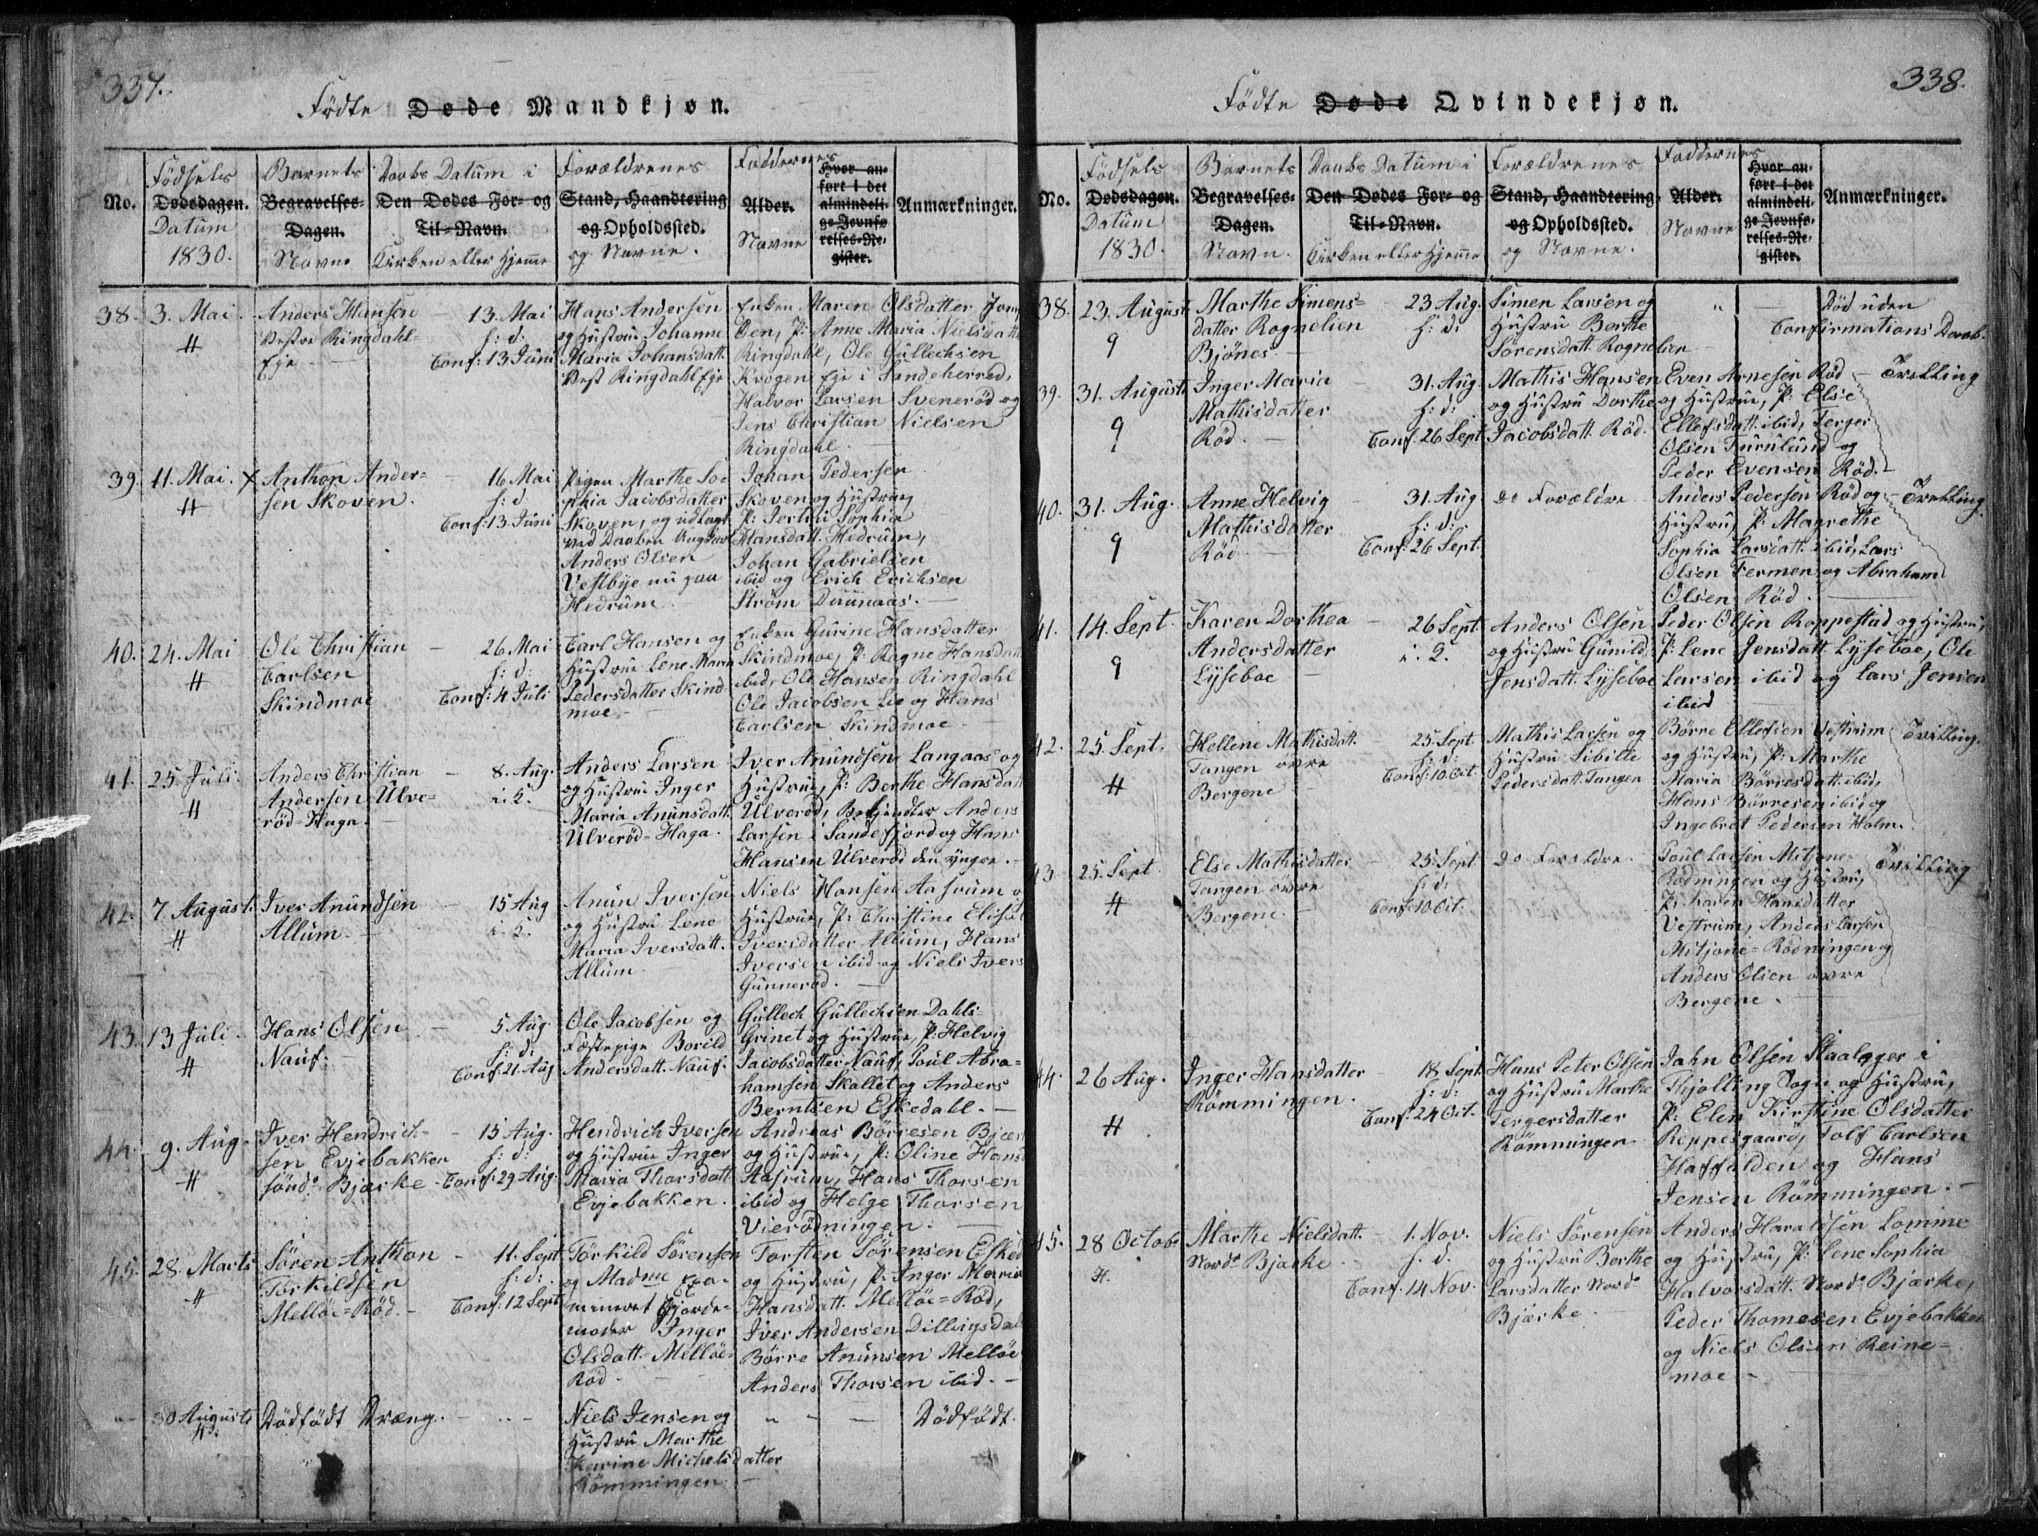 337.
Födte Døde Mandkjøn.
No.
Födsels
Dødsdagen.
Datum
1830.
Barnets
Begravelses-
Dagen.
Navne
Daabs Datum i
Den Dødes For- og
Til-Navn.
Kirken eller Hjemme
Forældrenes
Stand, Haandtering
og Opholdssted.
og Navne.
Faddernes
Alder.
Navne
Hvor an-
ført i det
almindeli-
ge Jevnfø-
relses-Re-
gister.
Anmærkninger.
38. 3. Mai.
H
Anders Hansen
Vestre Ringdahl
Eje
13. Mai
h: d:
Conf: 13 Juni
Hans Andersen
og Hustrue Johanne
Maria Johansdatt.
Vest Ringdahl Eje
Enken Maren Olsdatter
P: Anne Maria Nielsdatt
Ringdahl, Ole Gullechsen
Krogen Eje i Sandeherred,
Halvor Larsen Svenerød og
Jens Christian Nielsen
Ringdahl
39. 11. Mai. X
H
Anthon Ander-
sen Skoven.
16 Mai
h: d:
Conf: 13 Juni
Pigen Marthe So-
phia Jacobsdatter
Skoven, og udlagt
ved Daaben Ungkarl
Anders Olsen
Vestbye nu paa
Hedrum.
Johan Pedersen
Skoven og Hustrue,
P: Sophia
Hansdatt. Hedrum,
Johan Gabrielsen
ibid og Erich Erichsen
Ström
40. 24. Mai
H
Ole Christian
Carlsen
Skindmoe
26 Mai
h: d:
Conf: 4 Juli
Carl Hansen og
Hustrue Lene Maria
Pedersdatter Skind-
moe.
Enken Gurine Hansdatter
Skindmoe, P: Ragne Hansdatt
ibid, Ole Hansen Ringdahl
Ole Jacobsen Lie og Hans
Carlsen Skindmoe
41. 25. Juli.
H
Anders Christian
Andersen Ulve-
röd-Haga.
8. Aug.
i. K.
Anders Larsen
og Hustrue Inger
Maria Anunsdatt.
Ulveröd-Haga.
Iver Anundsen Langaas og
Hustrue, P: Berthe Hansdatt
Ulveröd, Anders
Larsen i Sandefjord og Hans
Hansen Ulveröd den yngre.
42. 7. August.
H
Iver Anundsen
Allum
15 Aug
i. K.
Anun Iversen
og Hustru Lene
Maria Iversdatt.
Allum
Niels Hansen Aasrum o
Hustrue, P: Christine Elisab
Iversdatter Allum, Hans
Iversen ibid og Niels Ivers
Gunneröd.
43. 13 Juli.
H
Hans Olsen
Nauf.
5 Aug.
h: d:
Conf: 21 Aug
Ole Jacobsen og
Fæstepige Borild
Andersdatt. Nauf.
Gullech Gullechsen Dahls
Grinet og Hustrue, P: Helvig
Jacobsdatter Nauf, Poul Abra-
hamsen Skallet og Anders
Berntsen Eskedahl.
44. 9. Aug.
H
Iver Hendrich-
sen Evjebakken
sönd. Bjærke
15 Aug.
h: d:
Conf: 29 Aug.
Hendrich Iversen
og Hustrue Inger
Maria Thorsdatt
Evjebakken.
Andreas Börresen Bjær
og Hustrue, P: Oline Hans
Aasrum, Hans Thorsen
ibid og Helge Thorsen
Vierödningen.
45. 28. Marts
H
Sören Anthon
Torkildsen
Melløe-Röd.
11. Sept
h: d:
Conf: 12 Sept.
Torkild Sörensen
og Madme Exa-
mineret Gjorde-
moder Inger
Olsdatt. Melløe-
Röd.
Torsten Sörensen Esked
og Hustru, P: Inger Maria
Hansdatt. Melløe-Röd,
Iver Andersen Dillvigsdal
Börre Anunsen Melløe
Anders Thorsen ibid.
30 Augusti
H.
Dödfödt Dræng.
Niels Jensen og
Hustru Marthe
Karine Michelsdatter
Römmingen
Dödfödt.
338.
Födte Døde Qvindekjøn.
No.
Födsels
Dødsdagen.
Datum
1830.
Barnets
Begravelses-
Dagen.
Navn.
Daabs Datum i
Den Dødes For- og
Til-Navn.
Kirken eller Hjemme
Forældrenes
Stand, Haandtering
og Opholdssted.
og Navne.
Faddernes
Alder.
Navne
Hvor an-
ført i det
almindeli-
ge Jevnfø-
relses-Re-
gister.
Anmærkninger.
38. 23. August
9
Marthe Simens-
datter Rognelien
Bjönes.
23 Aug.
h: d:
Simen Larsen og
Hustru Berthe
Sørensdatt. Rognelien
Död uden
Confirmations Daab.
39. 31. August
9
Inger Maria
Mathisdatter
Röd.
31. Aug
h: d:
Conf: 26 Sept
Mathis Hansen
og Hustru Dorthe
Jacobsdatt. Röd.
Even Arnesen Röd
og Hustrue, P: Else
Ellefsdatt. ibid, Terger
Olsen Furulund og
Peder Evensen Röd.
Trilling
40. 31. Aug.
9
Anne Helvig
Mathisdatter
Röd
31. Aug
h: d:
Conf: 26 Sept.
do Forældre
Anders Pedersen Röd og
Hustru, P: Magrethe
Sophia Larsdatt. ibid, Lars
Olsen Fermen og Abraham
Olsen Röd.
Trilling
41. 14. Sept.
9
Karen Dorthea
Andersdatter
Lyseboe
26 Sept.
i. K.
Anders Olsen
og Hustru Gunild
Jensdatt. Lyseboe
Peder Olsen Roppestad og Hustru,
P: Lene Jensdatt. Lyseboe, Ole
Larsen ibid og Lars Jensen
ibid
42. 25. Sept.
H
Hellene Mathisdatt.
Tangen øvre
Bergene
25. Sept.
h: d:
Conf: 10. Oct.
Mathis Larsen og
Hustru Sibille
Pedersdatt. Tangen
Börre Ellefsen Vestrum
og Hustru, P: Marthe
Maria Börresdatt. ibid,
Hans Börresen ibid og
Ingebret Pedersen Holm.
Tvilling.
43. 25. Sept
H
Else Mathisdatter
Tangen øvre
Bergene.
25. Sept
h: d:
Conf: 10 Oct.
do Forældre.
Poul Larsen Mitjone-
Rödningen og Hustru,
P: Karen Hansdatter
Vestrum, Anders Larsen
Mitjone-Rödningen og
Anders Olsen øvre
Bergene.
Tvilling
44. 26 Aug.
H
Inger Hansdatter
Römmingen.
18 Sept.
h: d:
Conf: 24 Oct.
Hans Peter Olsen
og Hustru Marthe
Tergersdatter
Römmingen
Jahn Olsen Staalager i
Thjølling Sogn og Hustru,
P: Elen Kirstine Olsdatter
Reppesgaard, Tolf Carlsen
Haffalden og Hans
Jensen Römmingen.
45. 28 Octob.
H.
Marthe Nielsdatt.
Nordr Bjærke
1. Nov.
h. d.
Conf: 14 Nov.
Niels Sörensen
og Hustru Berthe
Larsdatter Nordr
Bjærke.
Anders Haraldsen Lomme
og Hustru, P: Lene Sophia
Halvorsdatt. Nordr Bjærke,
Peder Thomesen Evjebakken
og Niels Olsen Reine-
moe